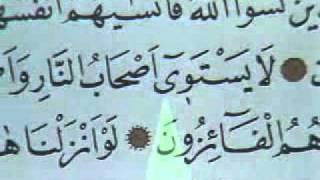 ين نسوا الله فانسيهم انفسه
لَا يَسْتَوِٓي اَصْحَابُ النَّارِ وَاَ
هُمُ الْفَٓائِزُونَ لَوْ اَنْزَلْنَا هٰ